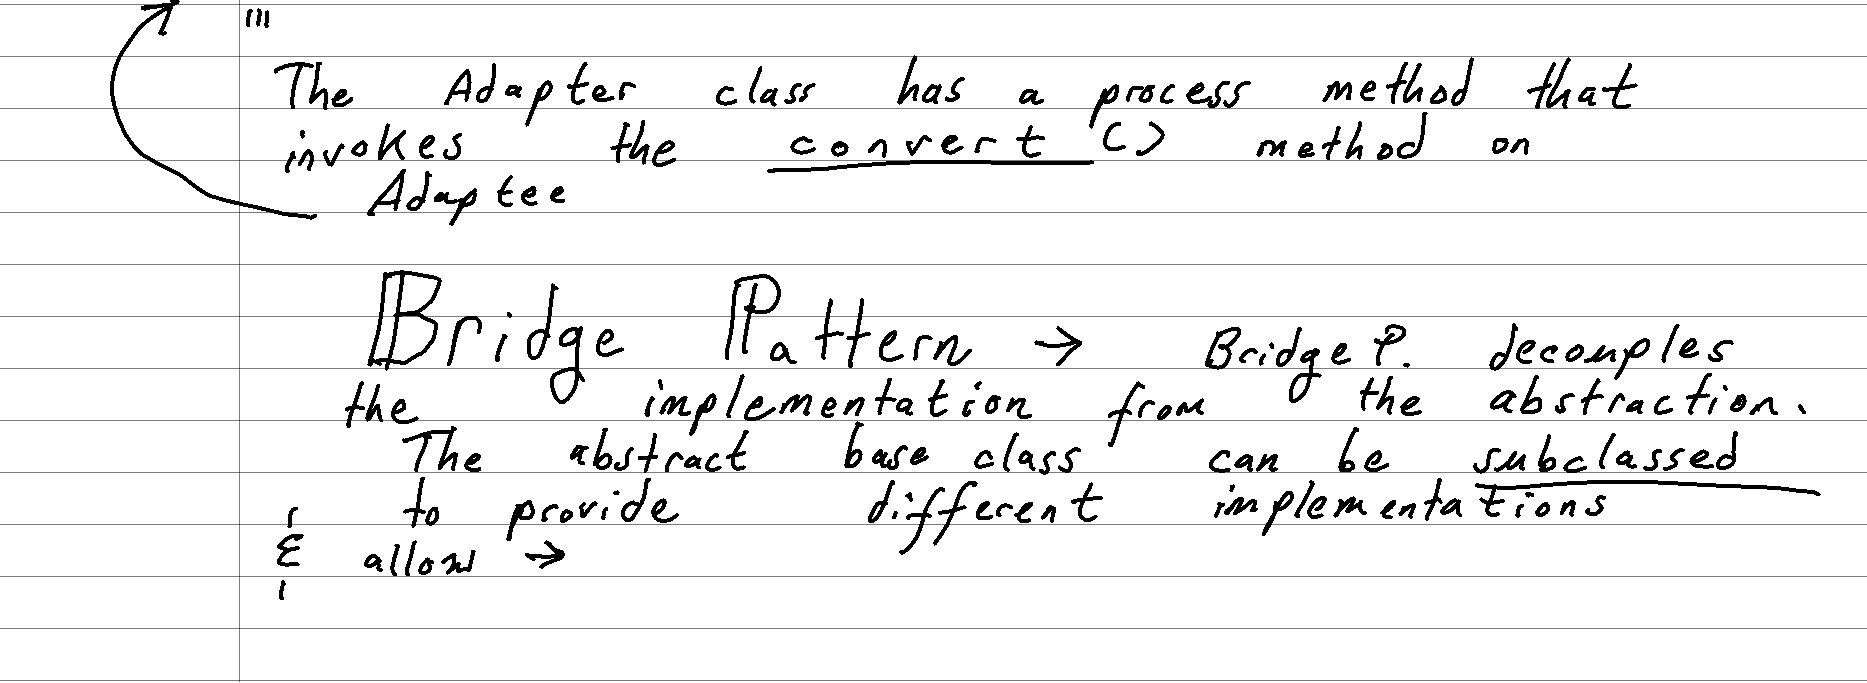 The Adapter class has a process method that
invokes the convert() method on
Adaptee
Bridge Pattern → Bridge P. decouples
the implementation from the abstraction.
The abstract base class can be subclassed
to provide different implementations
& allow →